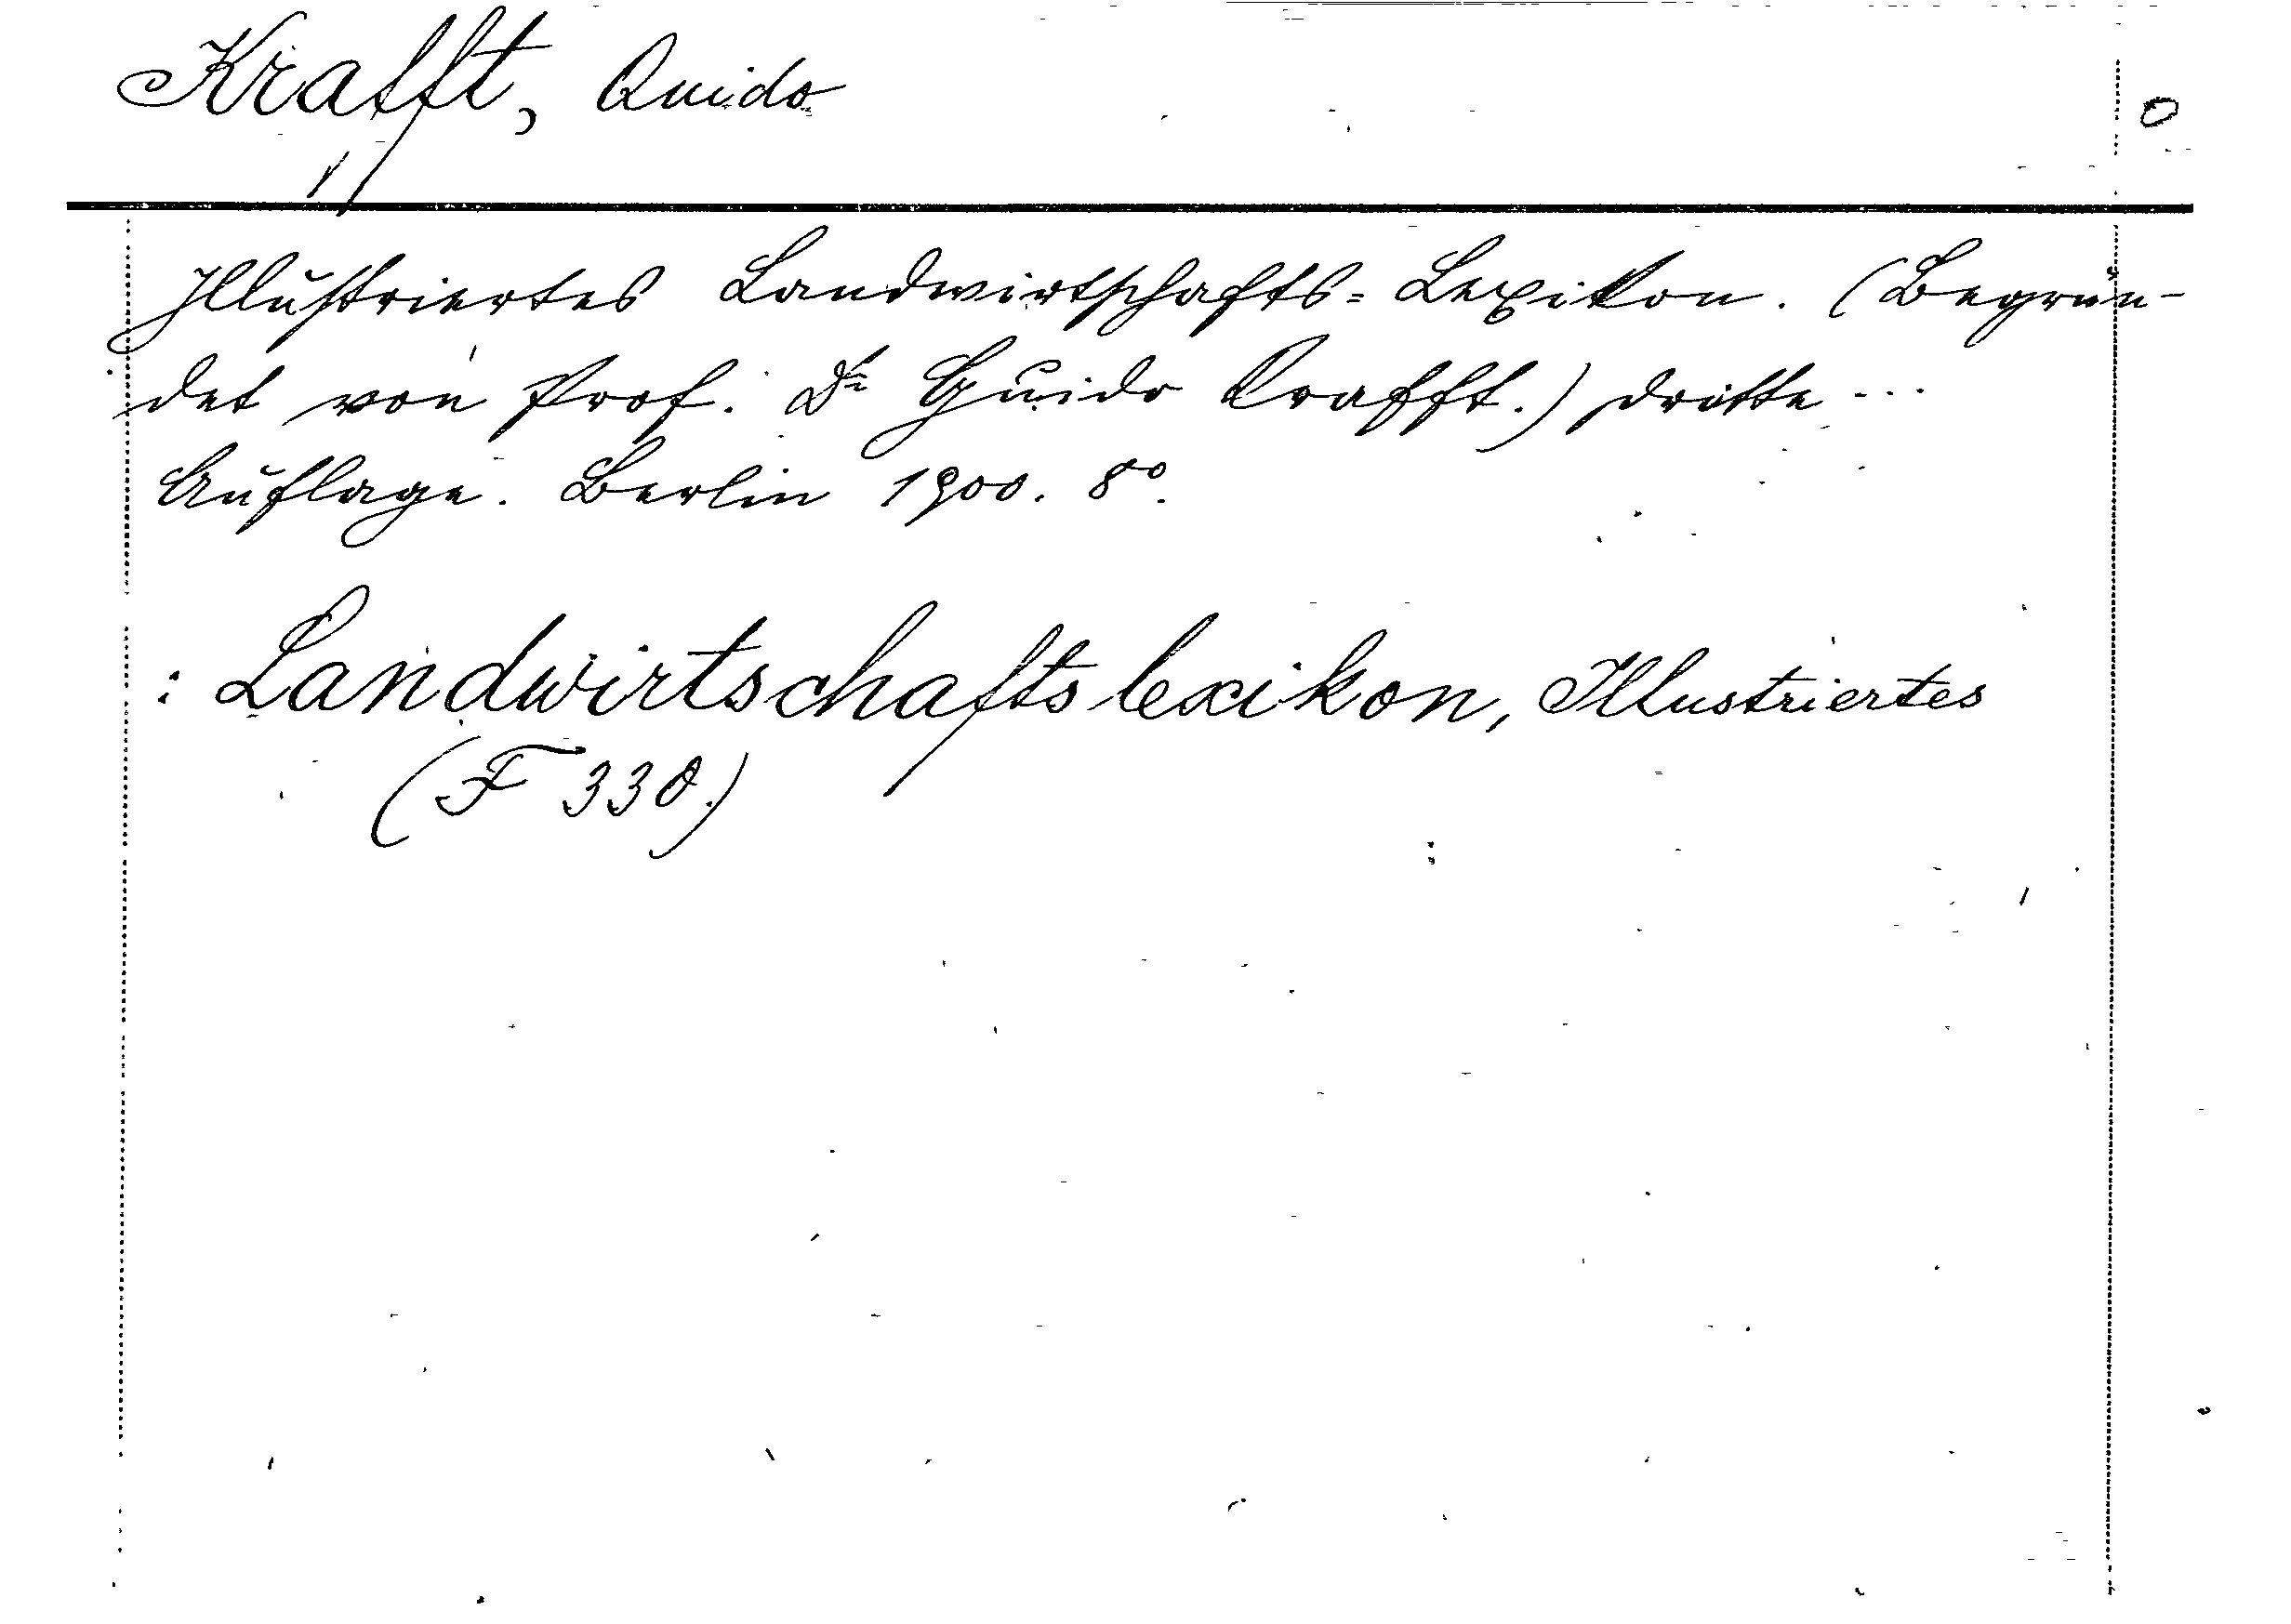 Krafft, Quido
0
Illustriertes Landwirtschafts= Lexikon. (Begrün-
det von Prof. Dr Guido Krafft.) Dritte ...
Auflage. Berlin 1900. 8°.
: Landwirtschaftslexikon, Illustriertes
(F 330.)